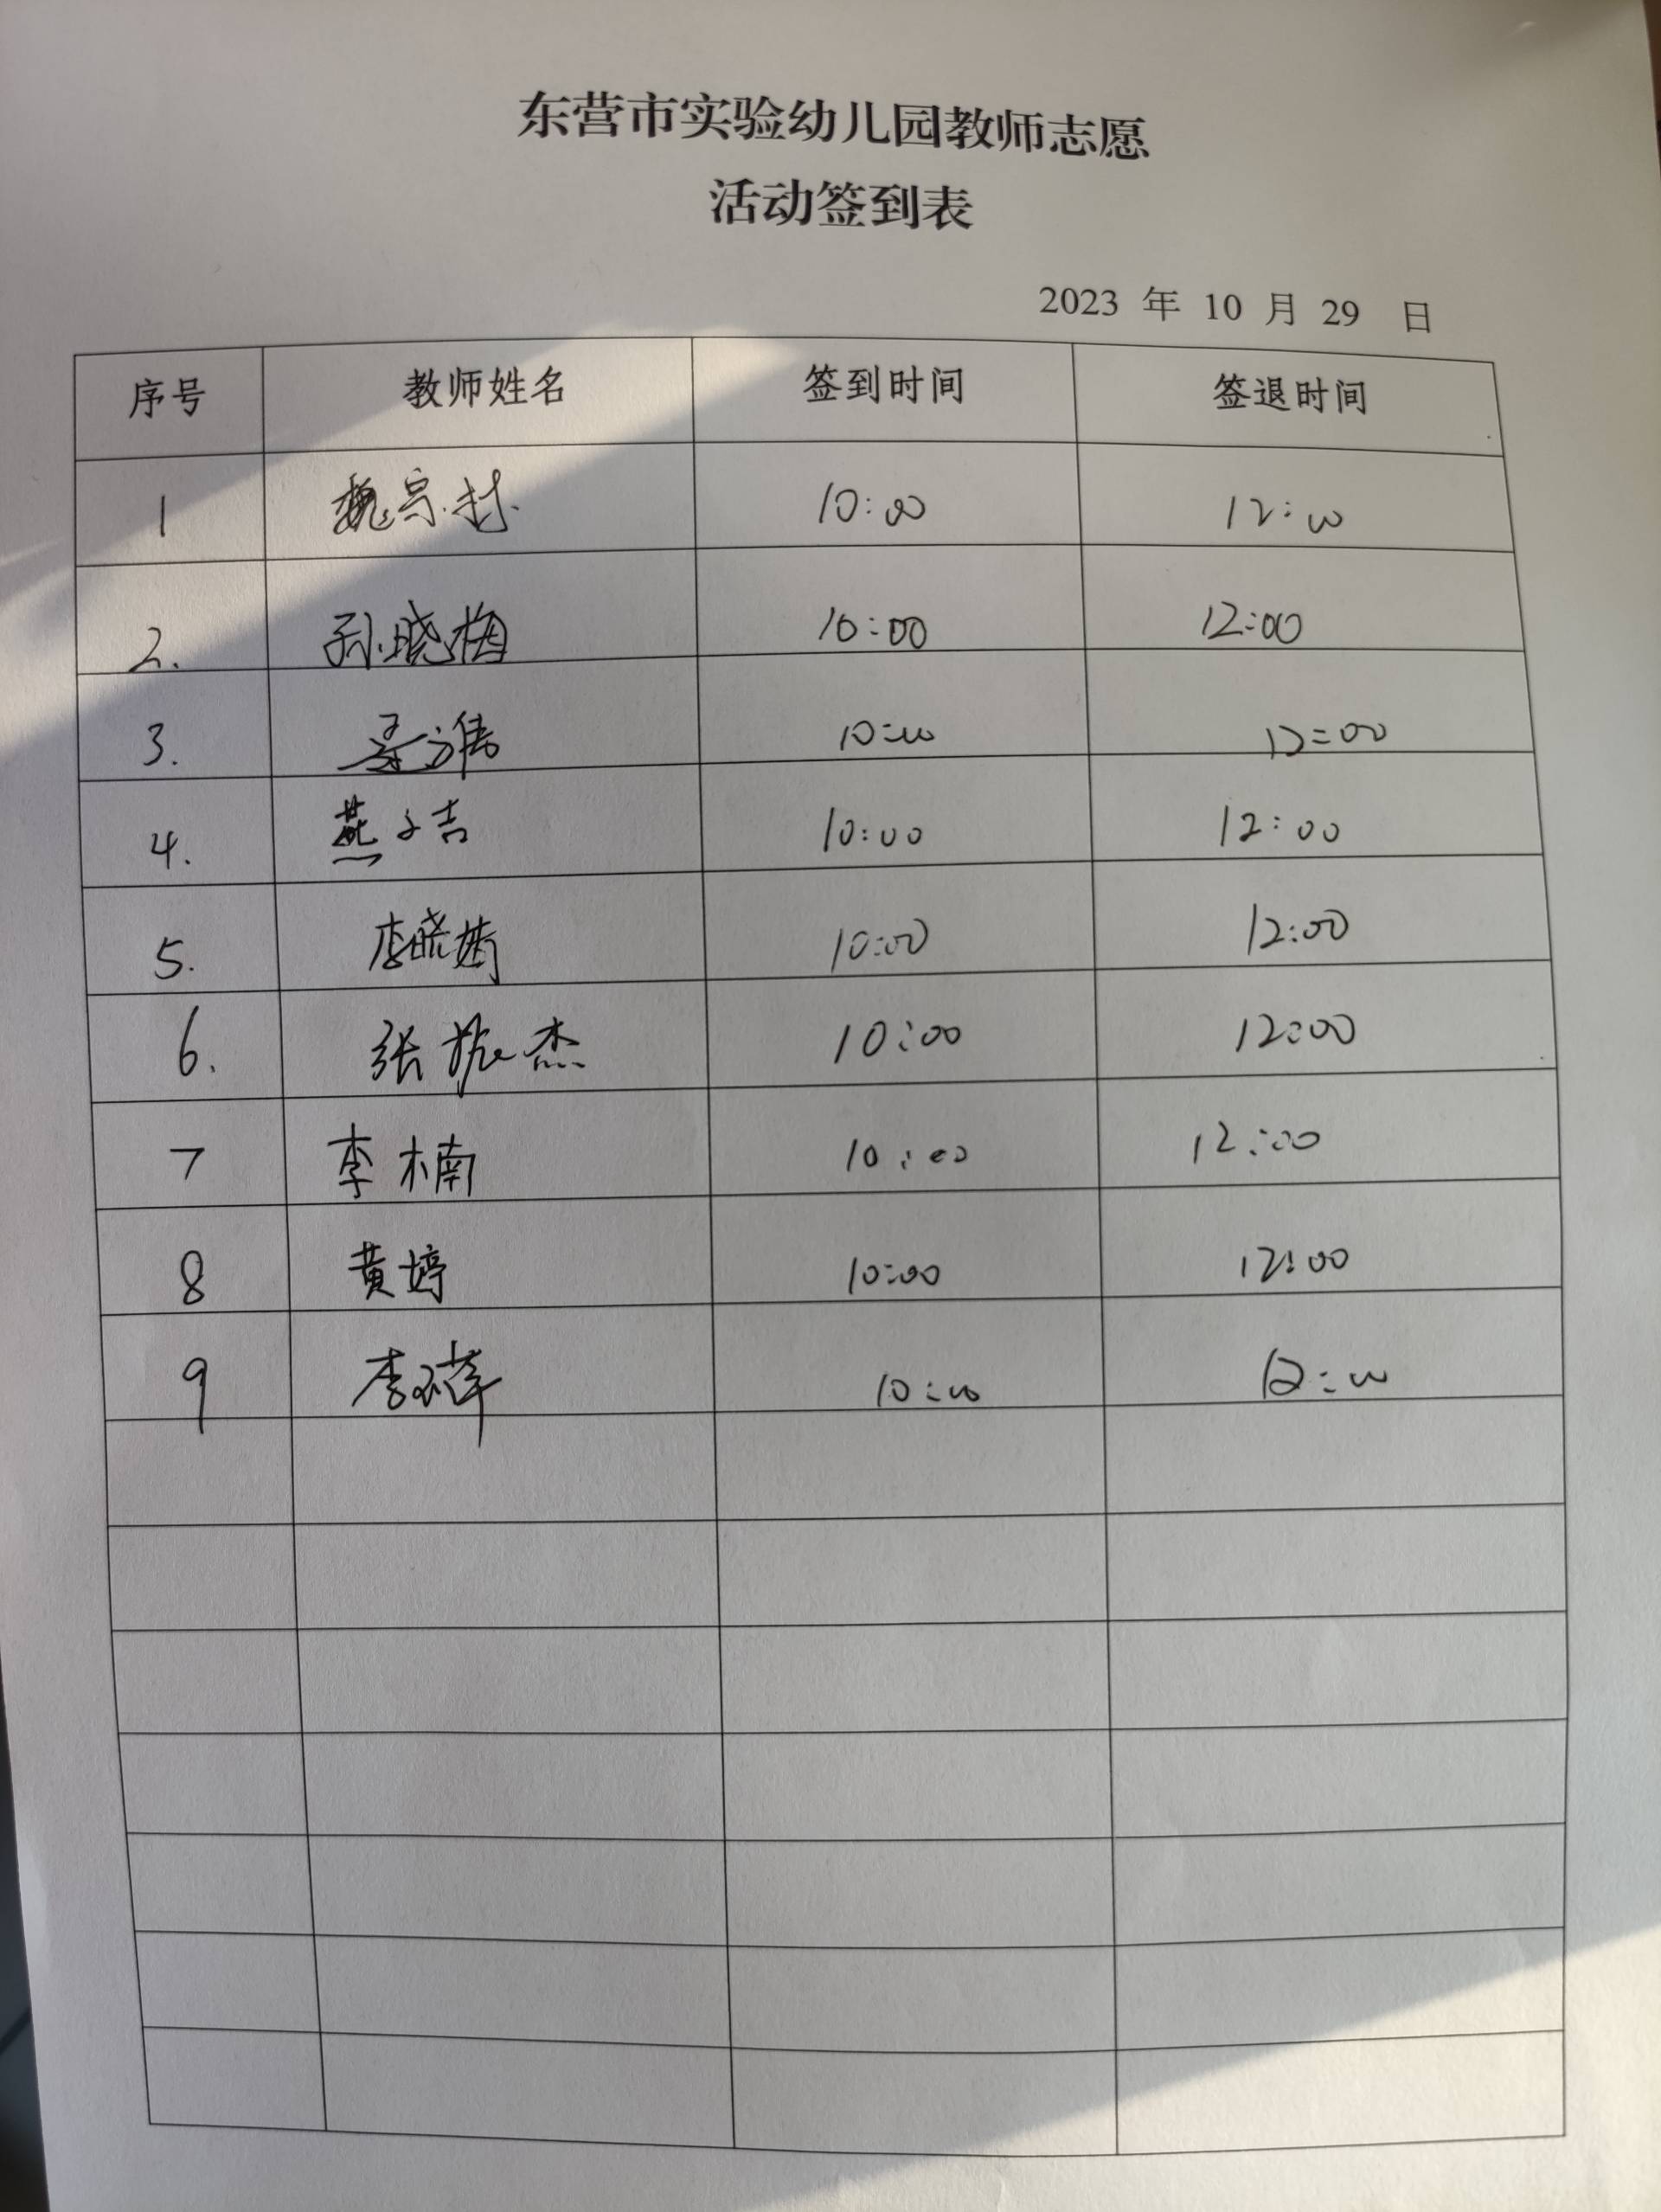 东营市实验幼儿园教师志愿
活动签到表
2023 年 10 月 29 日
序号 教师姓名 签到时间 签退时间
1 魏宗 10:00 12:00
2. 孙晓梅 10:00 12:00
3. 10:00 12:00
4. 燕子吉 10:00 12:00
5. 李晓婧 10:00 12:00
6. 张振杰 10:00 12:00
7 李楠 10:00 12:00
8 黄婷 10:00 12:00
9 李 10:00 12:00